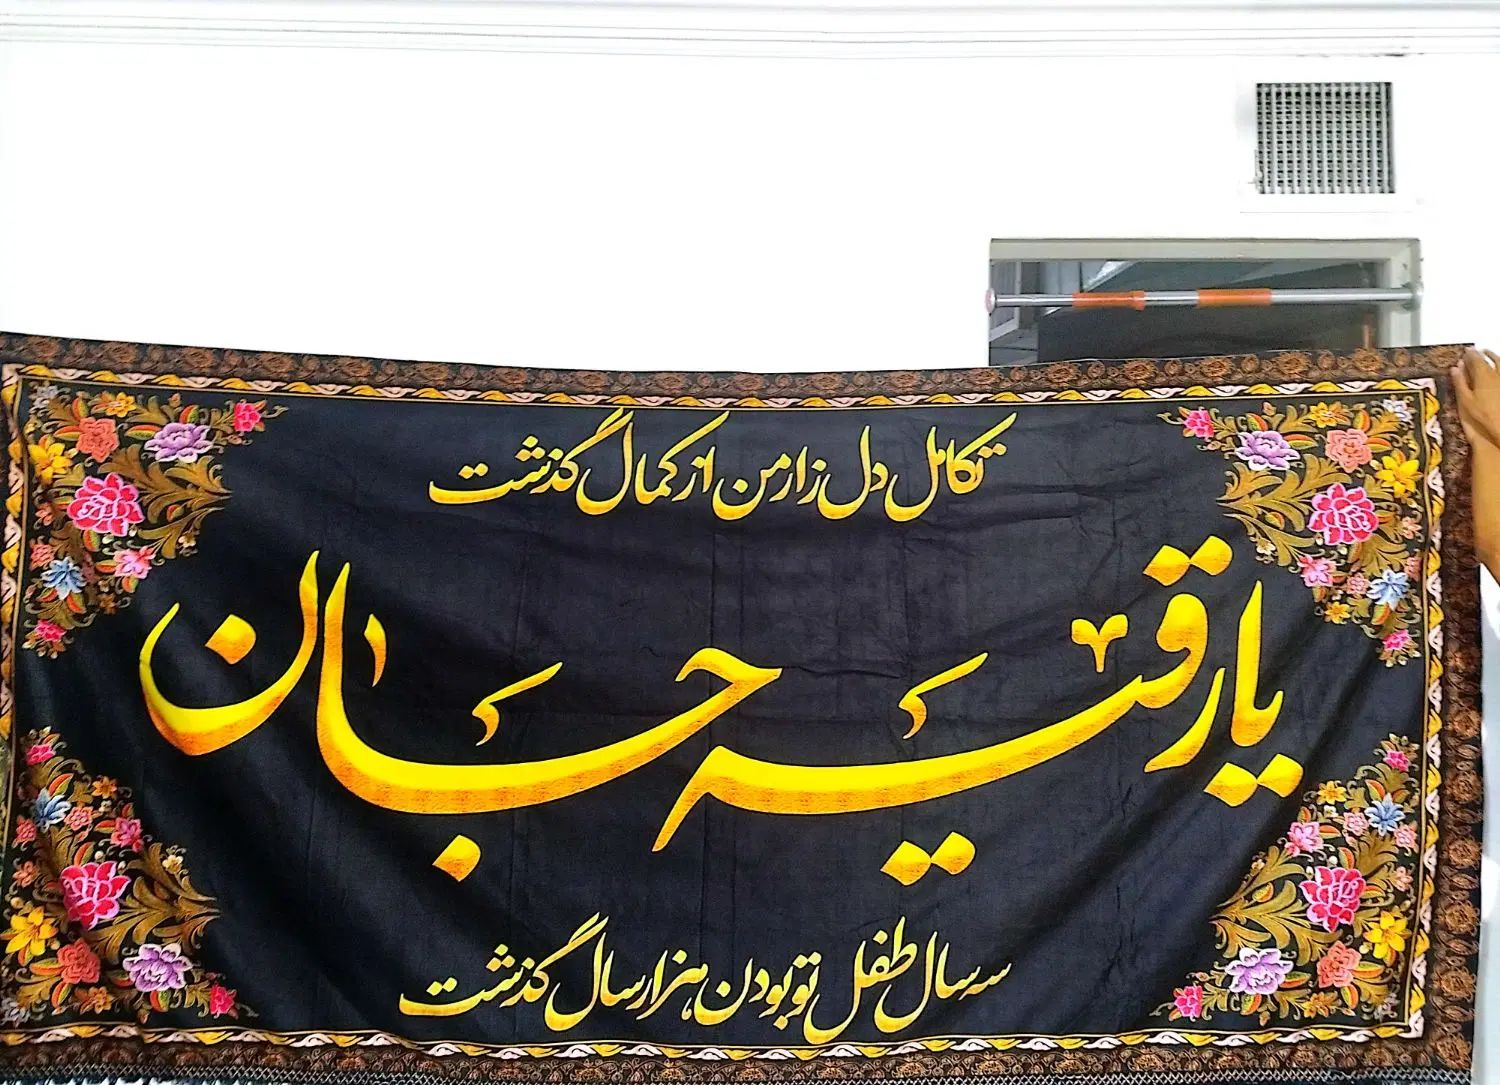 تکامل دل زار من از کمال گذشت
یا رقیه جان
سه سال طفل تو بودن هزار سال گذشت